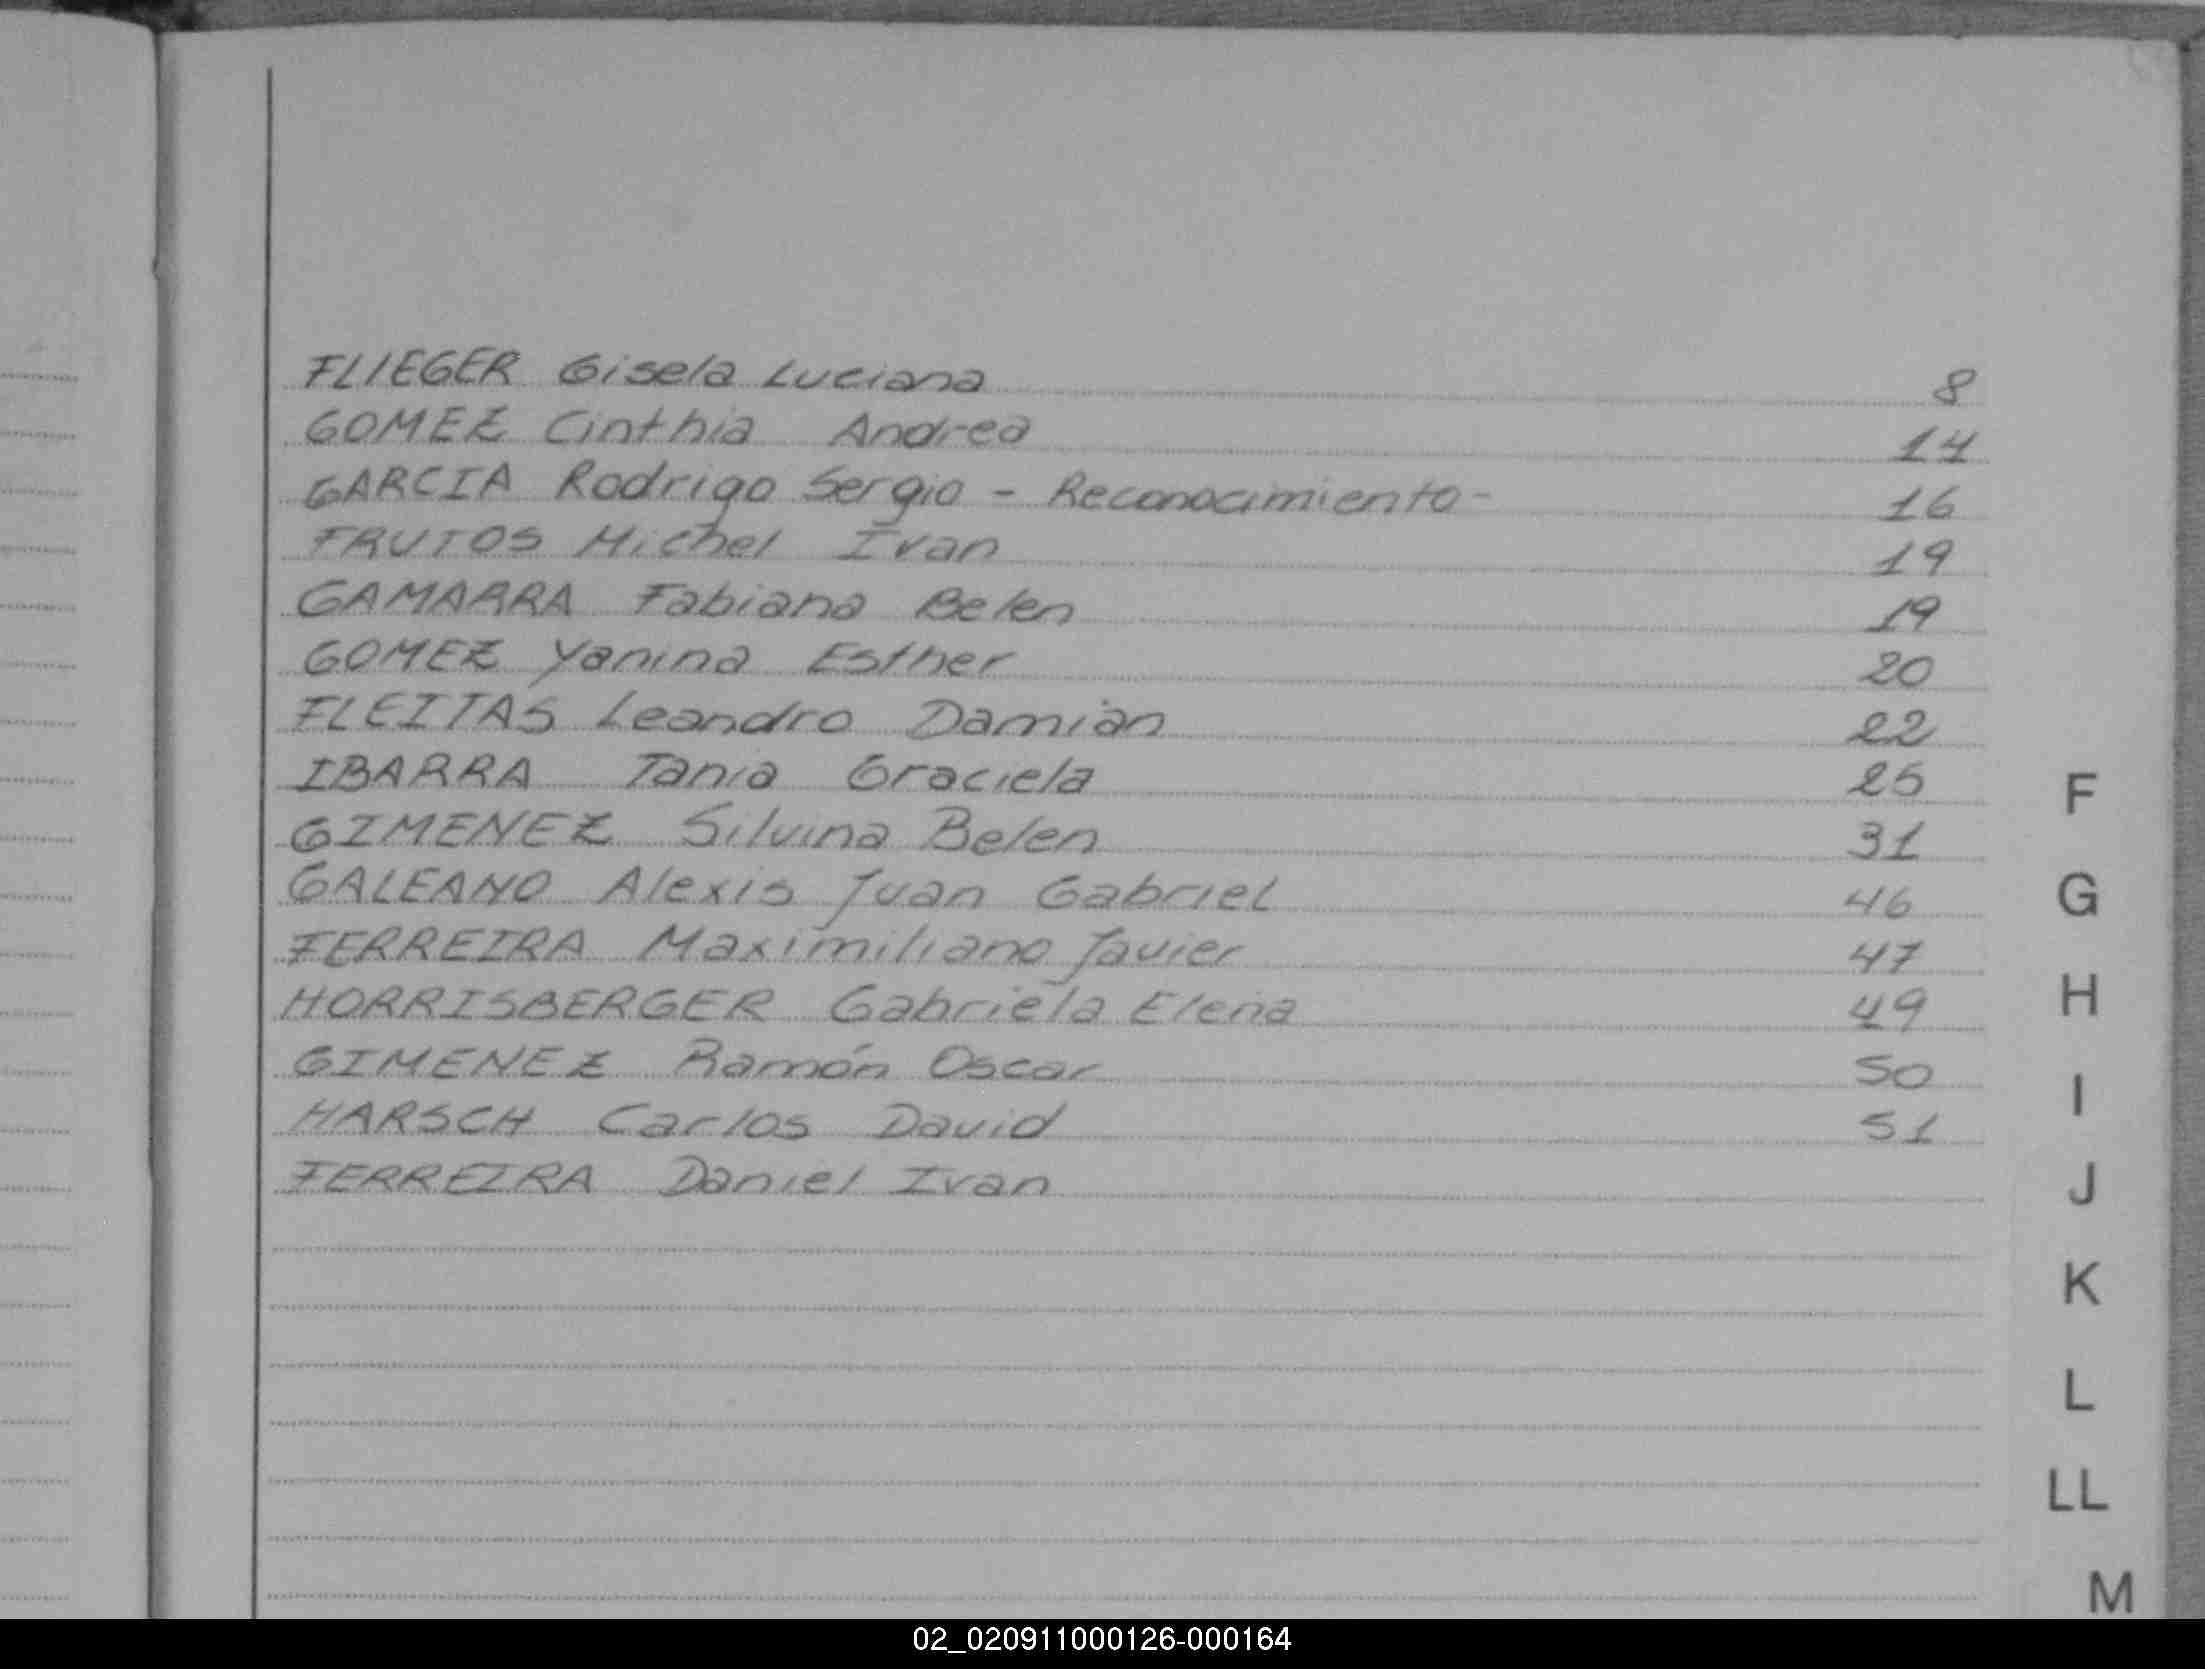 FLIEGER Gisela Luciana 8
GOMEZ Cinthia Andrea 14
GARCIA Rodrigo Sergio - Reconocimiento - 16
FRUTOS Michel Ivan 19
GAMARRA Fabiana Belen 19
GOMEZ Yanina Esther 20
FLEITAS Leandro Damián 22
IBARRA Tania Graciela 25
GIMENEZ Silvina Belen 31
GALEANO Alexis Juan Gabriel 46
FERREIRA Maximiliano Javier 47
HORRISBERGER Gabriela Elena 49
GIMENEZ Ramón Oscar 50
HARSCH Carlos David 51
FERREIRA Daniel Ivan
F
G
H
I
J
K
L
LL
M
02_020911000126-000164